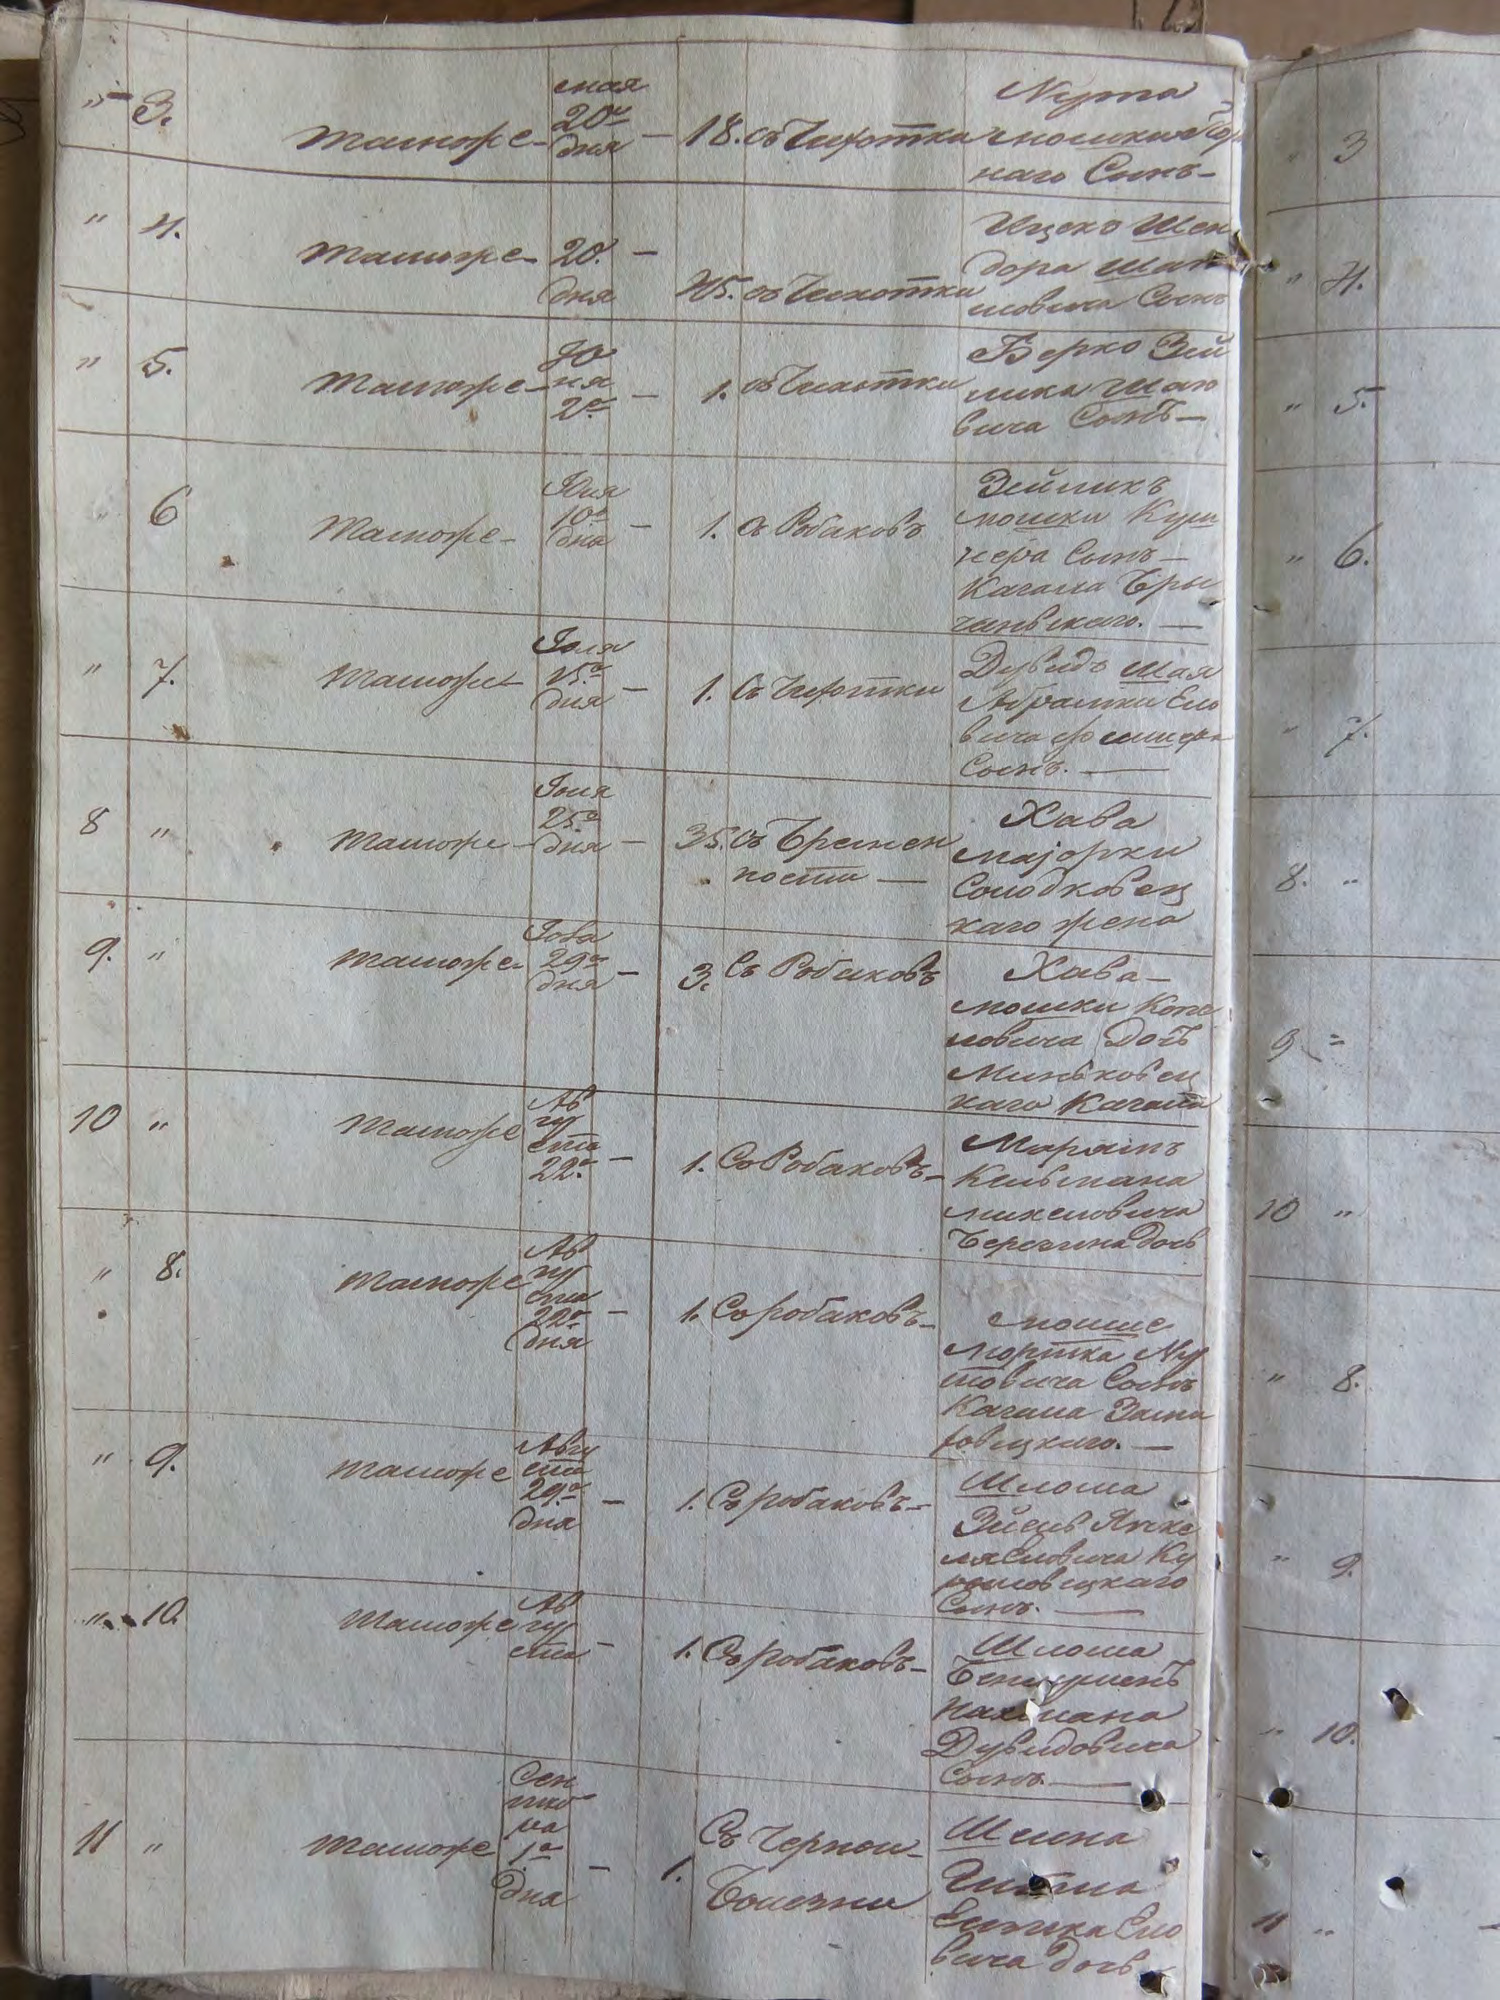 " 3. таможе мая 20го дня — 18. съ Чихотки Нута
мошки
наго Сынъ —
" 4. таможе 20. — дня 45. съ Чихотки Ицеко Шен
дора Шам
шовича Сынъ
" 5. таможе ня 2го — 1. съ Чихотки Берко Зей
лика Шаю
вича Сынъ —
6 таможе Юня 10го дня — 1. съ Робаковъ Зейликъ
мошки Куш
нера Сынъ —
Кагала Бри
чанскаго. —
" 7. таможе Юля 15го дня — 1. съ Чихотки Дувидъ Шая
Абрамки Ело
вича
Сынъ. —
8 " таможе Юля 25го дня — 35. съ Бремен
ности — Хава
майорки
Солодковец
каго жена
9. " таможе 29го дня — 3. Съ Робаковъ Хава —
мошки Копе
ловича Дочь
Миньковец
каго Кагала
10 " таможе Ав
гу
ста
22го — 1. Съ Робаковъ — Марямъ
Кельмана
михеловича
Дочь
" 8. таможе Ав
гу
ста
22го
дня — 1. Съ робаковъ — мошие
мортка Ну
товича Сынъ
Кагала
вецкаго. —
" 9. таможе Авгу
ста
29го
дня — 1. Съ робаковъ — Шлома
Янке
ля Еловича Ку
риловецкаго
Сынъ. —
" 10. таможе Ав
гу
ста — 1. Съ робаковъ — Шлома
Бенцыенъ
Нахмана
Дувидовича
Сынъ. —
11 " таможе Сен
тяб
ра
1го
дня — 1. Съ Черной
Болезни Шеина
Гитла
Ело
вича Дочь
" 3
" 4.
" 5.
" 6.
" 7.
8. "
9 "
10 "
" 8.
" 9.
" 10.
11 "